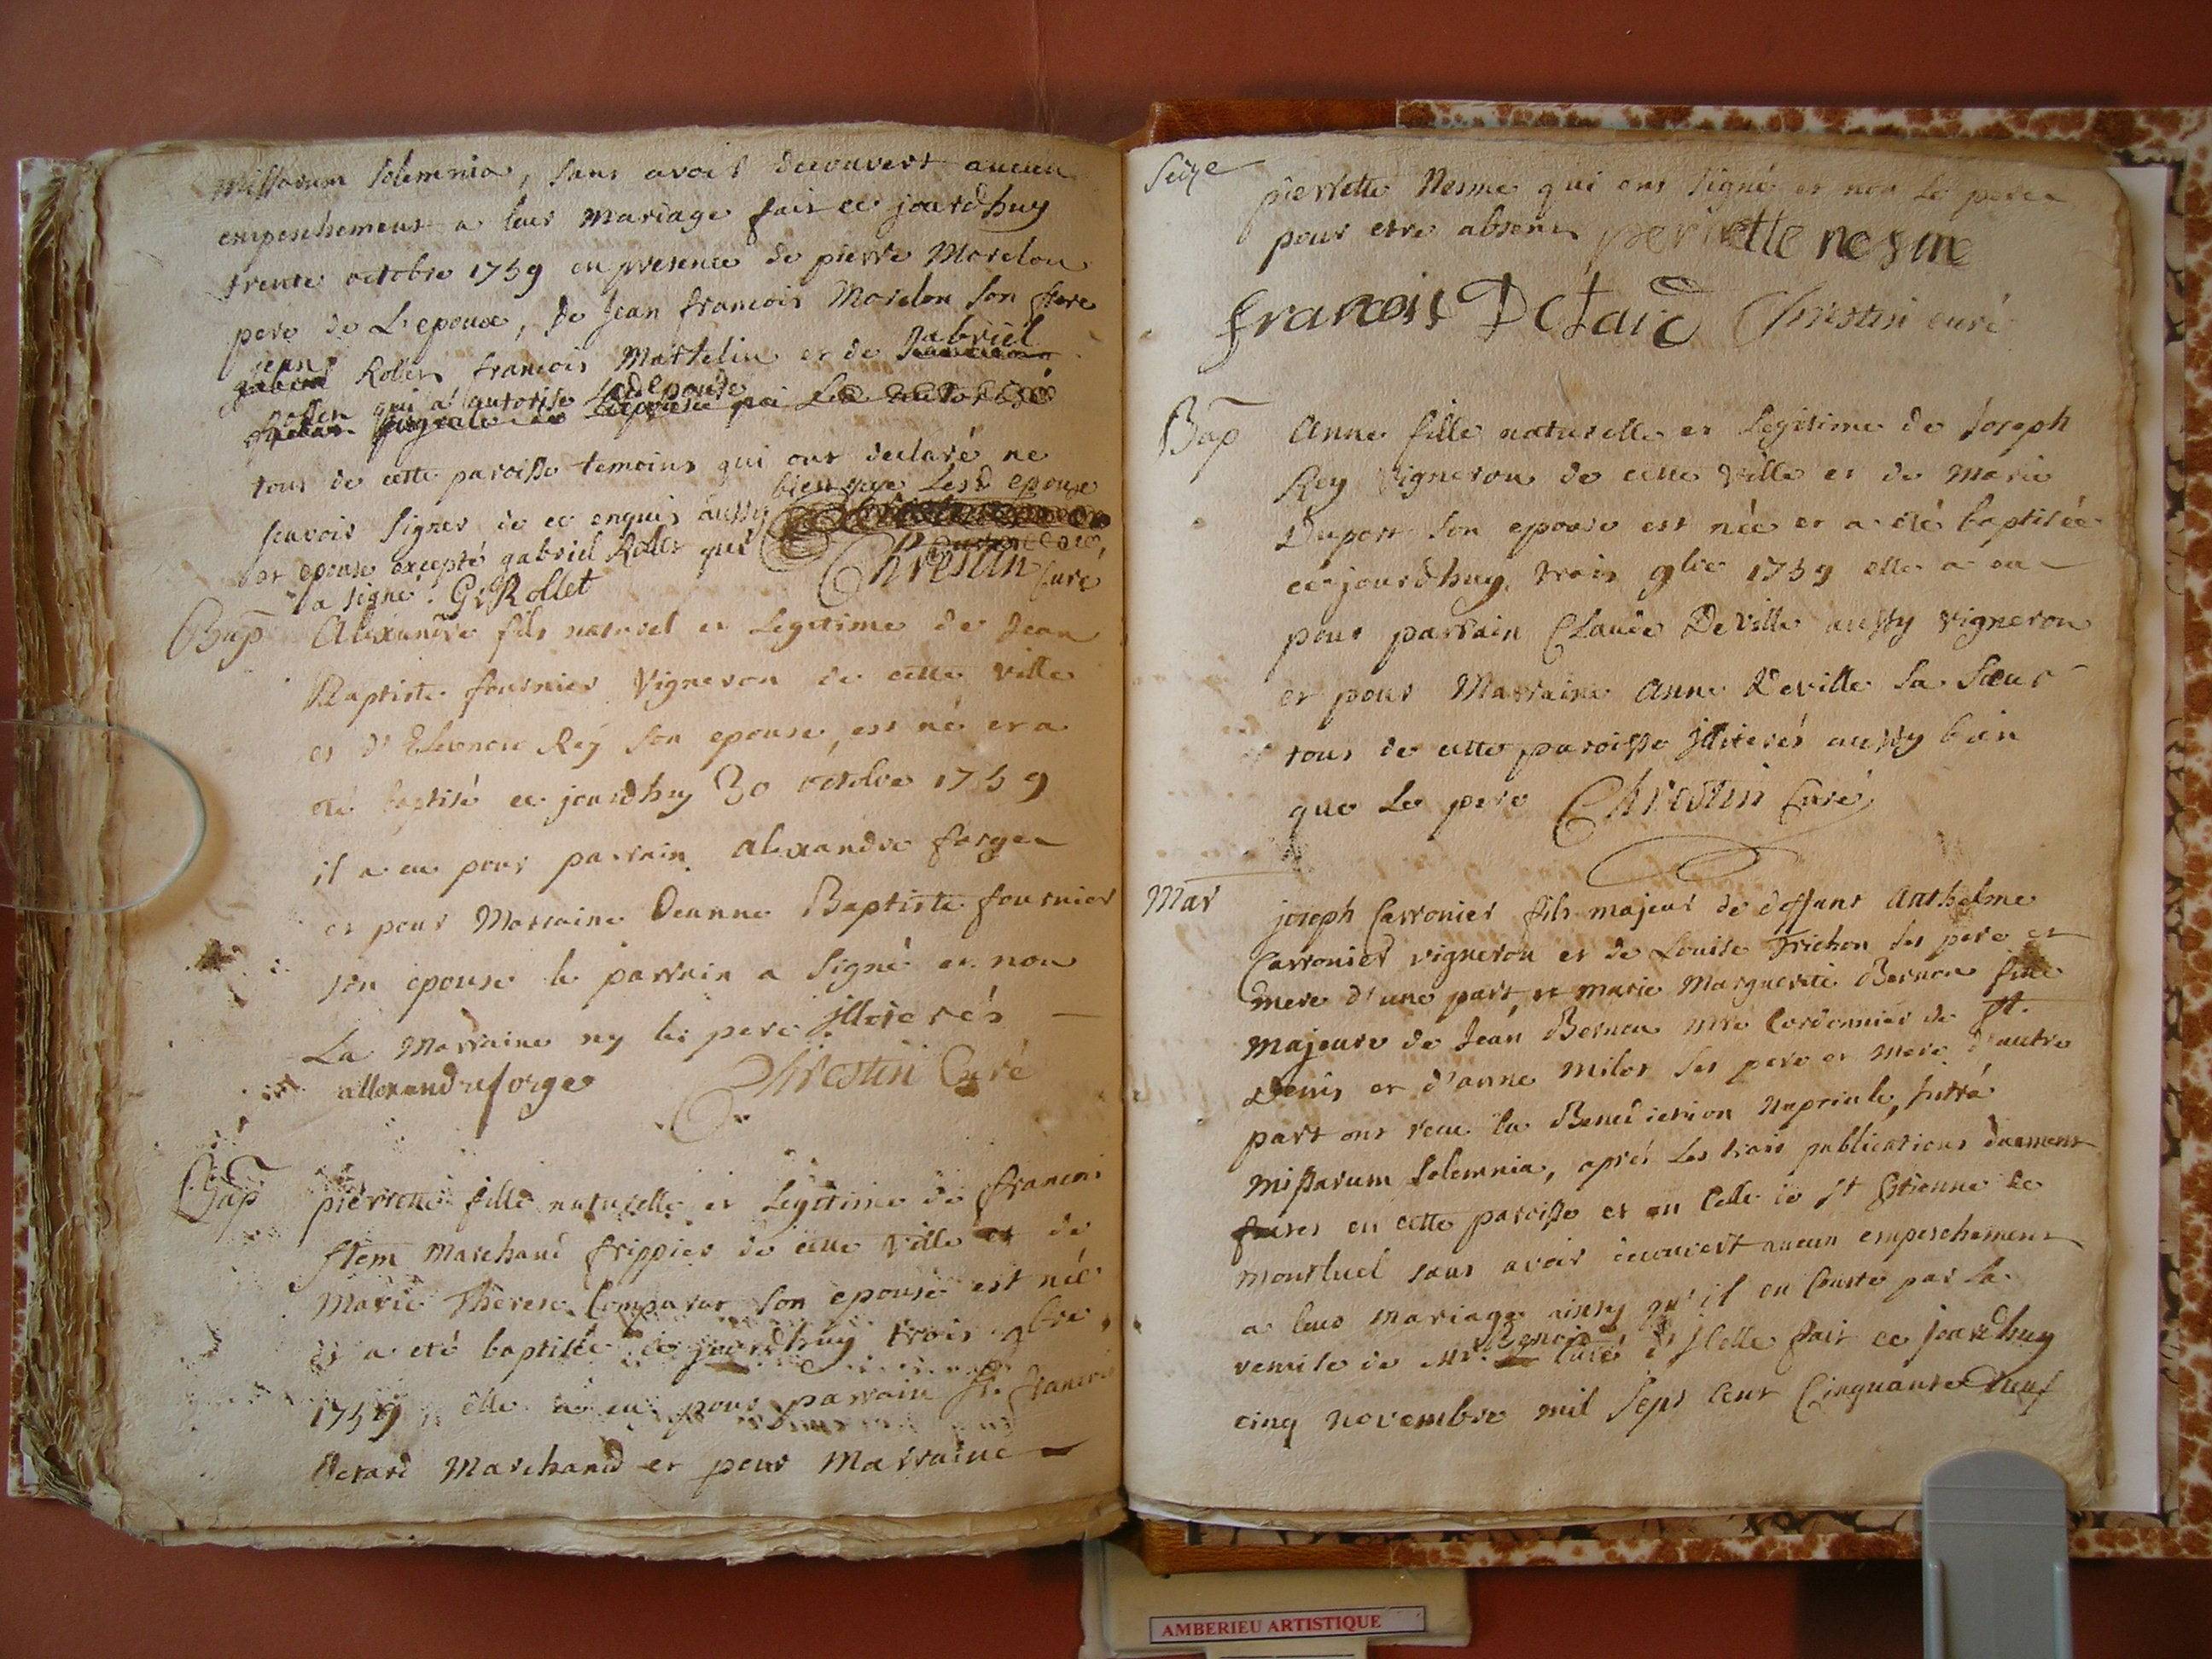 missarum solemnia, sans avoir decouvert aucun
empeschement a leur mariage fait ce jourdhuy
trente octobre 1759 en presence de pierre Morelon
pere de L'epoux, de Jean francois Morelon son frere
jean Rolet francois Mattelin et de gabriel
Rollet qui a autorisé Lad epouse
tous de cette paroisse temoins qui ont declaré ne
scavoir signer de ce enquis aussy bien que Lesd epoux
et epouse excepté gabriel Rollet qui
a signé. G. Rollet Chrestin Curé
Bap Alexandre fils naturel et Legitime de Jean
Baptiste fournier Vigneron de cette ville
et d'Eleonore Rey son epouse, est né et a
été baptisé ce jourdhuy 30 octobre 1759
il a eu pour parrain alexandre forge
et pour Marraine Jeanne Baptiste fournier
son epouse le parrain a signé et non
La Marraine ny le pere illiterés
allexandre forge Chrestin Curé
Bap pierrette fille naturelle et Legitime de francois
Stem Marchand frippier de cette ville et de
Marie Therese Comparat son epouse est née
et a eté baptisée ce jourdhuy trois 9bre
1759, elle a eu pour parrain Sr. francois
Detard Marchand et pour Marraine
Seize
pierrette Nesme qui ont signé et non le pere
pour etre absent perrette nesme
francois Detard Chrestin curé
Bap Anne fille naturelle et Legitime de Joseph
Rey Vigneron de cette Ville et de Marie
Duport son epouse est née et a eté baptisée
ce jourdhuy trois 9bre 1759 elle a eu
pour parrain Claude Deville aussy vigneron
et pour Marraine Anne Deville sa soeur
tous de cette paroisse illiterés aussy bien
que Le pere Chrestin Curé
Mar joseph Carronier fils majeur de deffunt Anthelme
Carronier vigneron et de Louise Trichon ses pere et
mere d'une part, et marie Marguerite Bernon fille
majeure de Jean Bernon mtre Cordonnier de St.
Denis et d'anne Milot ses pere et mere d'autre
part ont recu la Benediction Nuptiale, intra
missarum solemnia, aprés Les trois publications duement
faites en cette paroisse et en Celle de St Etienne de
montluel sans avoir decouvert aucun empeschement
a leur mariage ainsy qu'il en Conste par La
remise de Mr. Curé d'jcelle fait ce jourdhuy
cinq novembre mil sept Cent Cinquante Neuf
AMBERIEU ARTISTIQUE